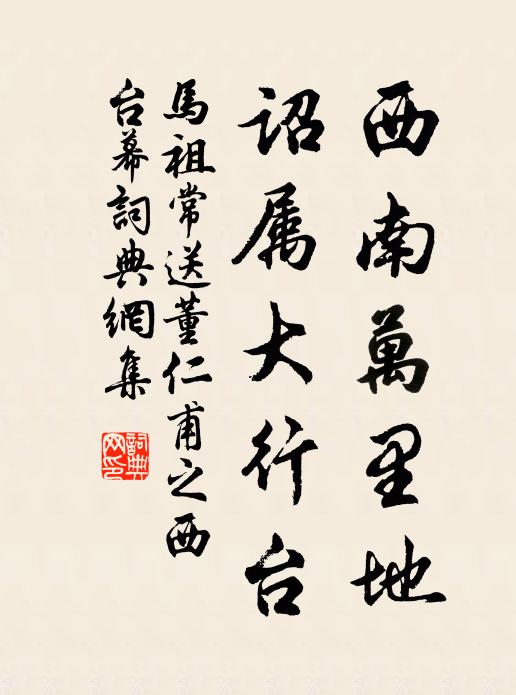 西南萬里地
詔属大行台
馬祖常送董仁甫之西
台幕詞典網集
詞典网印